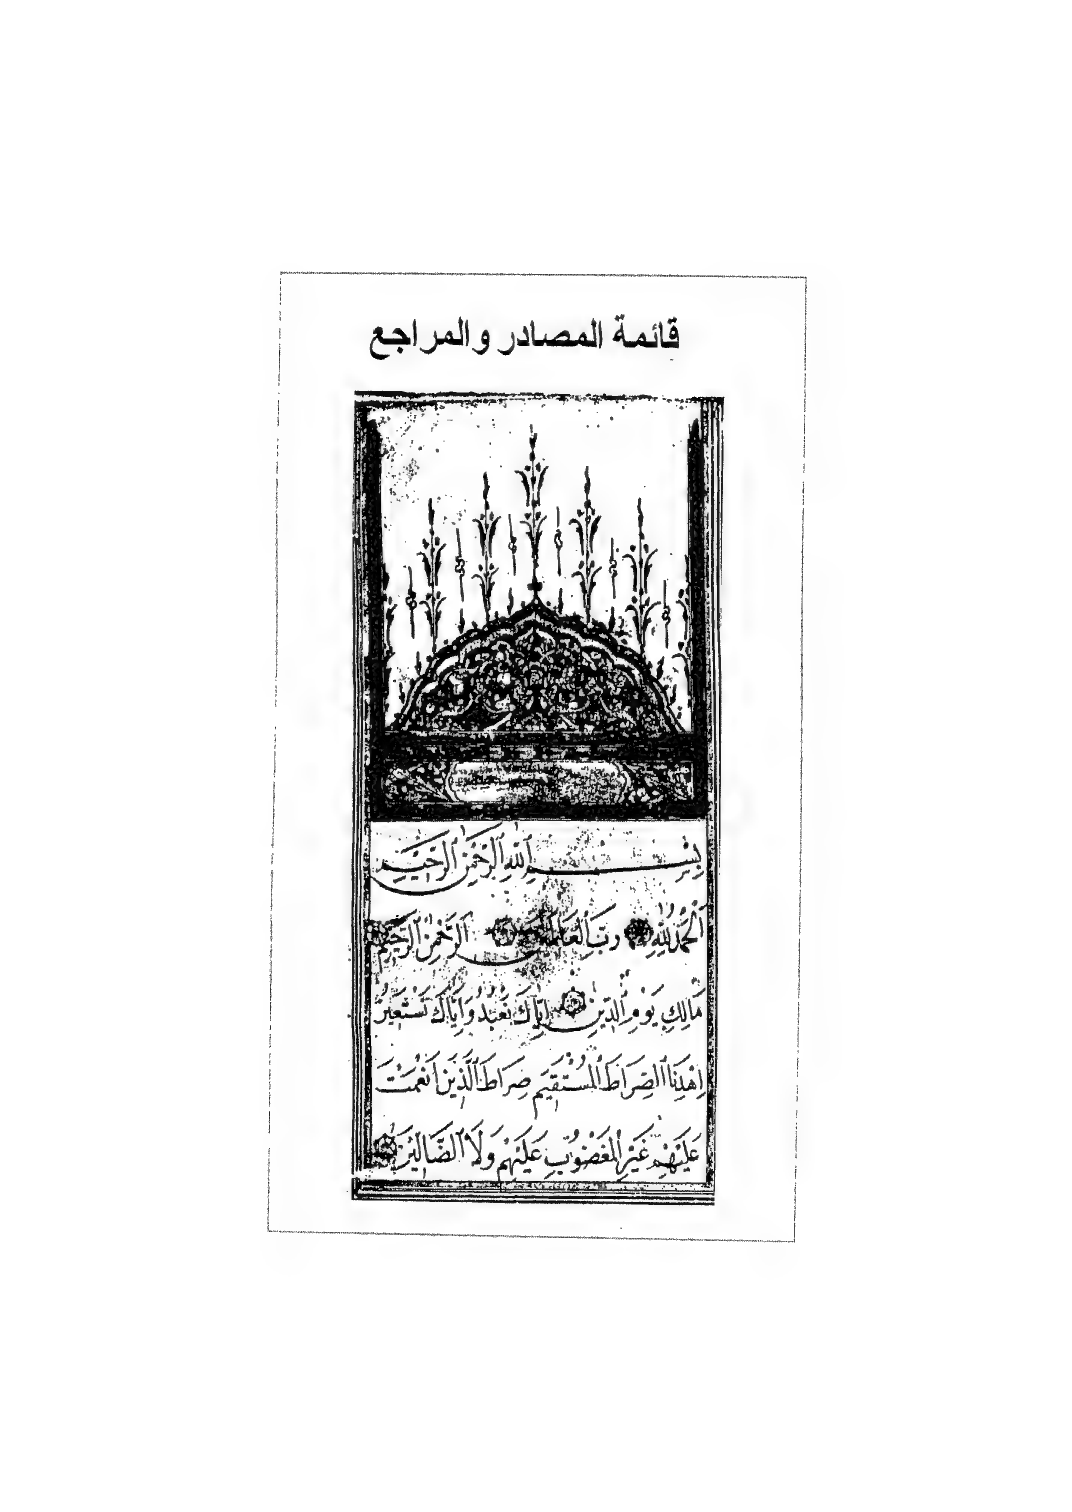 قائمة المصادر والمراجع
بِسْمِ ٱللَّهِ ٱلرَّحْمَٰنِ ٱلرَّحِيمِ
اَلْحَمْدُ لِلَّهِ رَبِّ ٱلْعَالَمِينَ اَلرَّحْمَٰنِ ٱلرَّحِيمِ
مَالِكِ يَوْمِ ٱلدِّينِ اِيَّاكَ نَعْبُدُ وَاِيَّاكَ نَسْتَعِينُ
اِهْدِنَا ٱلصِّرَاطَ ٱلْمُسْتَقِيمَ صِرَاطَ ٱلَّذِينَ اَنْعَمْتَ
عَلَيْهِمْ غَيْرِ ٱلْمَغْضُوبِ عَلَيْهِمْ وَلَا ٱلضَّالِّينَ